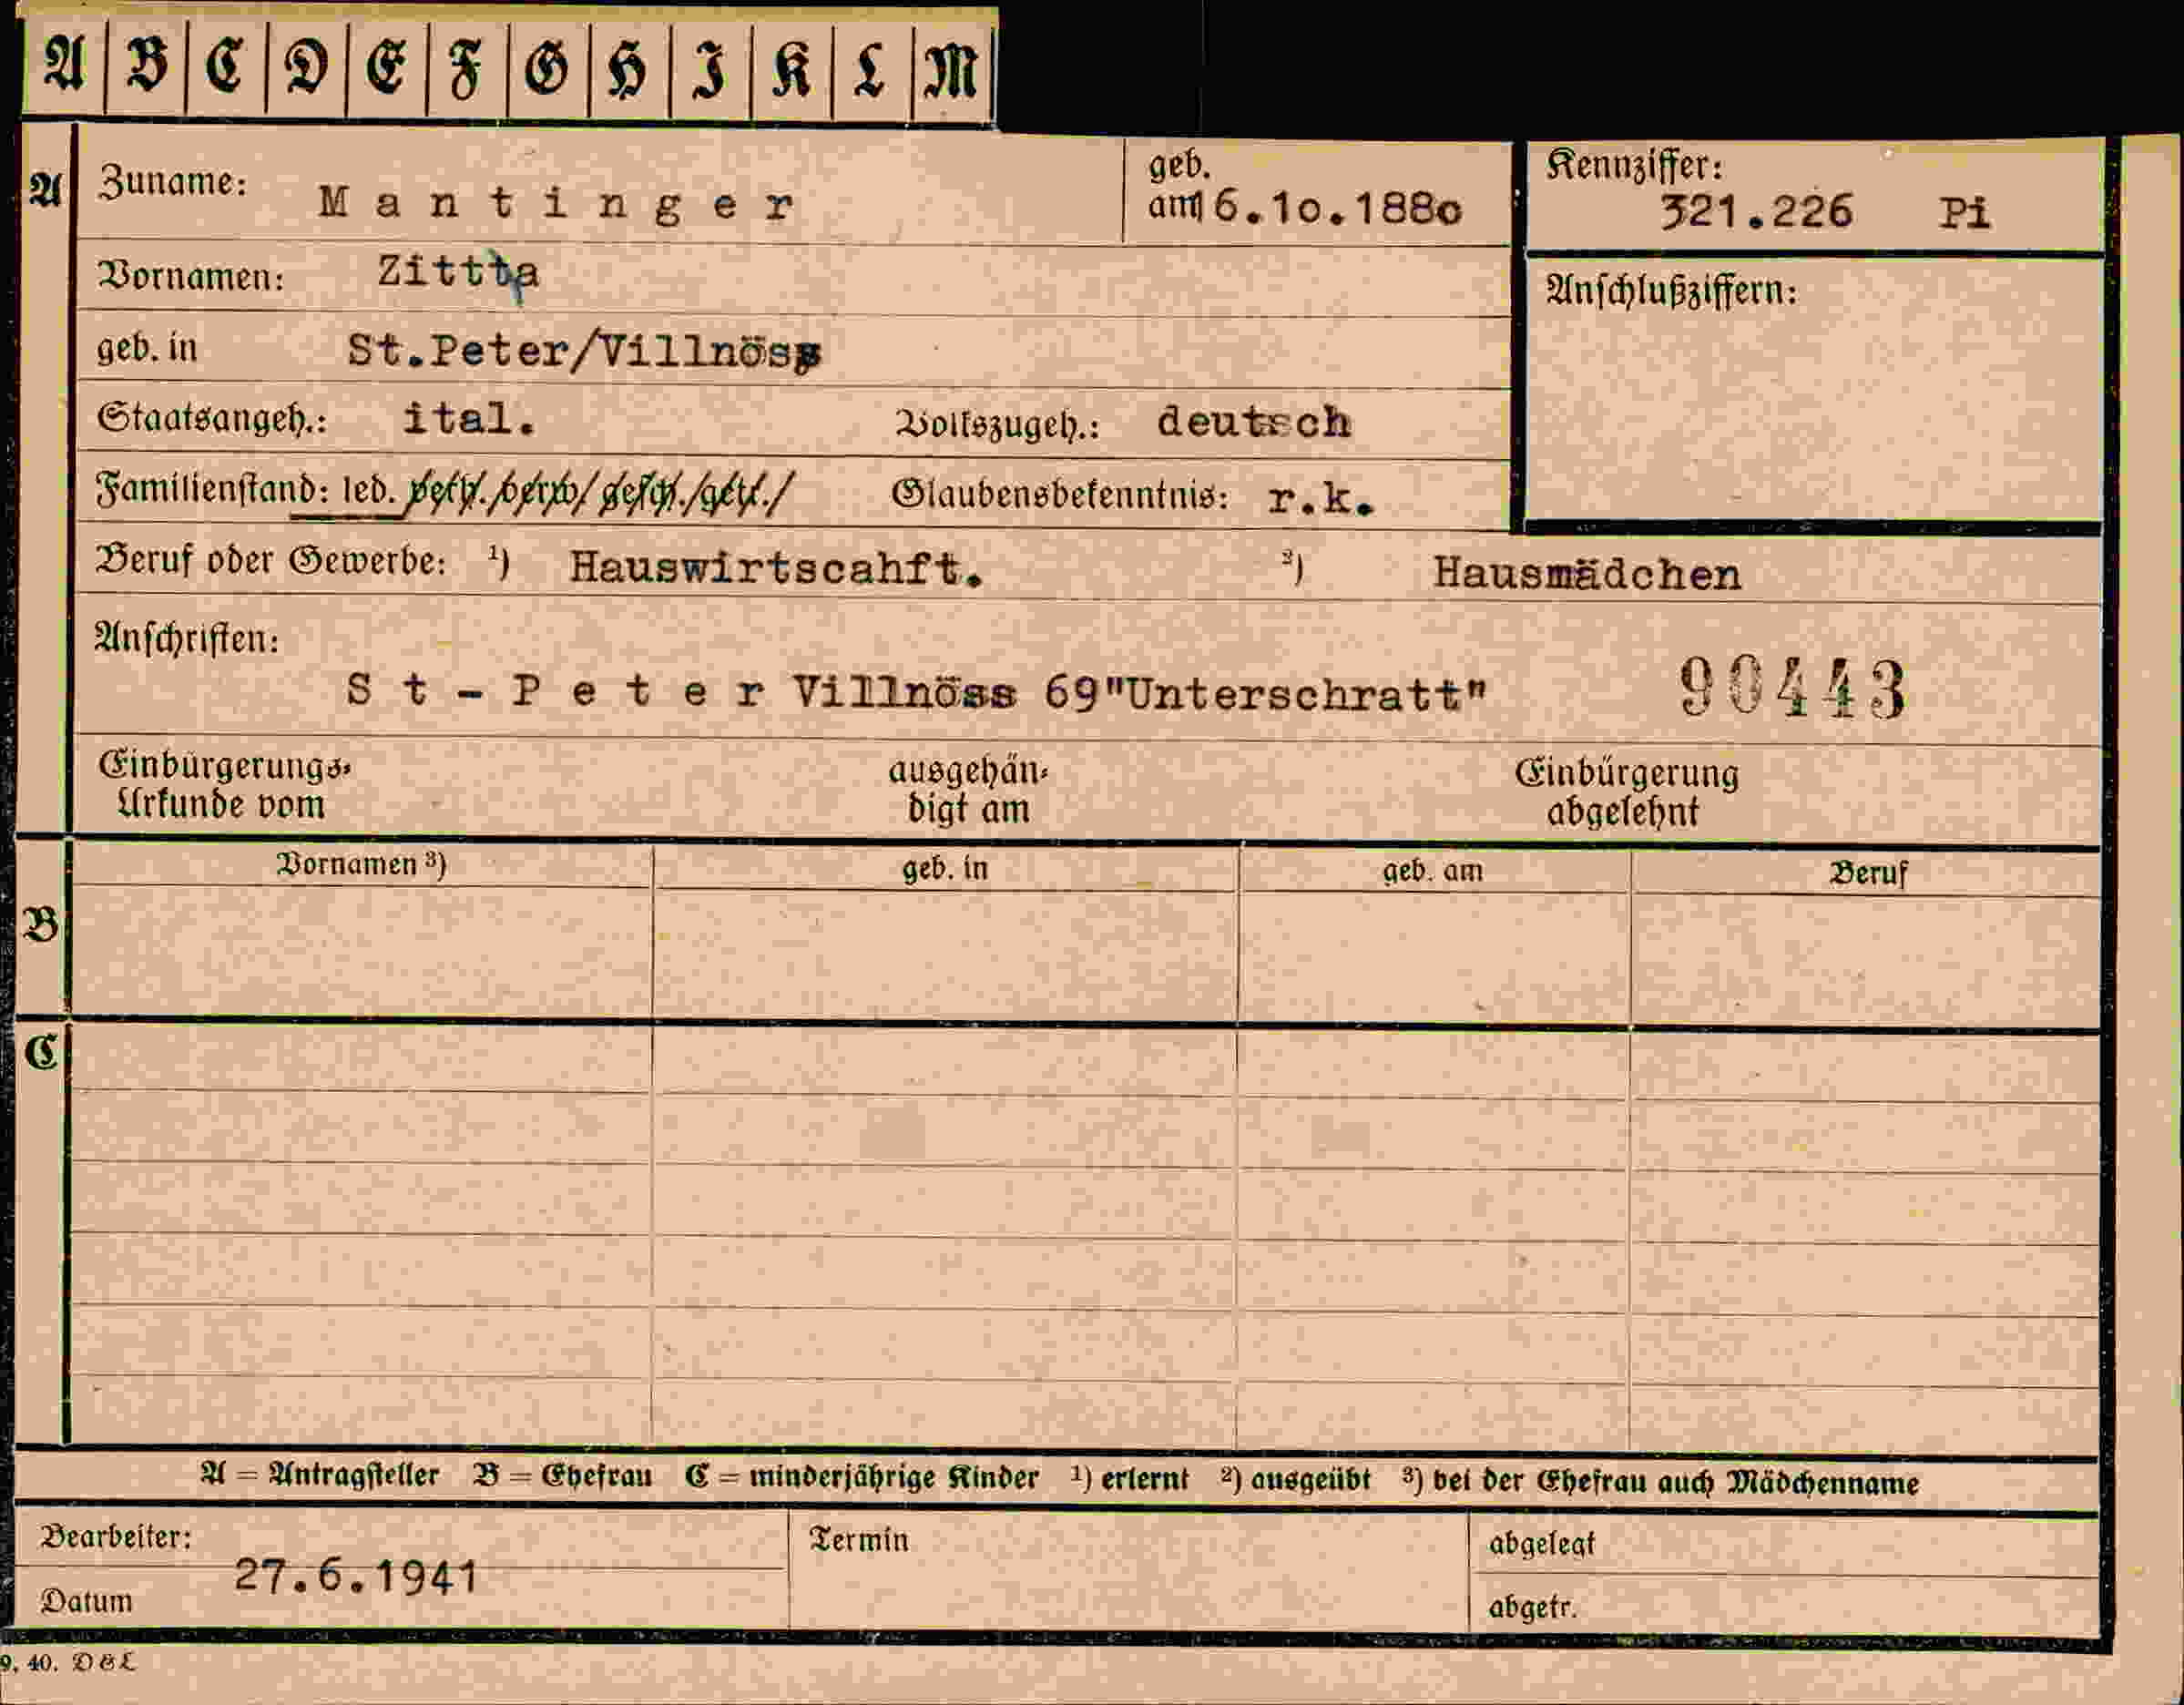 A B C D E F G H I K L M
A Zuname: Mantinger geb. am 16.10.1880 Kennziffer: 321.226 Pi
Vornamen: Zitta Anschlußziffern:
geb. in St.Peter/Villnöss
Staatsangeh.: ital. Volkszugeh.: deutsch
Familienstand: led. verh./verw/gesch./getr./ Glaubensbekenntnis: r.k.
Beruf oder Gewerbe: ¹) Hauswirtscahft. ²) Hausmädchen
Anschriften:
St-Peter Villnöss 69"Unterschratt" 90443
Einbürgerungs- ausgehän- Einbürgerung
Urkunde vom digt am abgelehnt
Vornamen ³) geb. in geb. am Beruf
B
C
A = Antragsteller B = Ehefrau C = minderjährige Kinder ¹) erlernt ²) ausgeübt ³) bei der Ehefrau auch Mädchenname
Bearbeiter: Termin abgelegt
27.6.1941
Datum abgetr.
9. 40. D & L